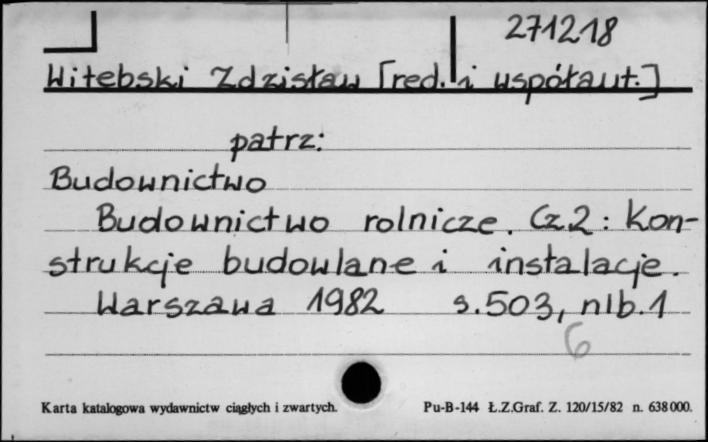 271218
Witebski Zdzisław [red. i współaut.]
patrz:
Budownictwo
Budownictwo rolnicze. Cz.2: Kon-
strukcje budowlane i instalacje.
Warszawa 1982 s.503, nlb.1
6
Karta katalogowa wydawnictw ciągłych i zwartych. Pu-B-144 Ł.Z.Graf. Z. 120/15/82 n. 638000.